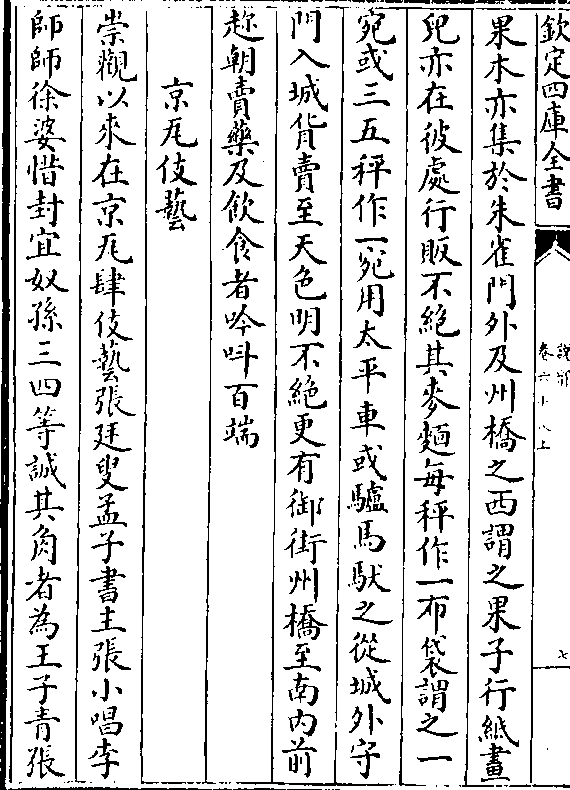 欽定四庫全書
説郛
卷六十八上
七
果木亦集於朱雀門外及州橋之西謂之果子行紙畫
兒亦在彼處行販不絶其麥麵每秤作一布袋謂之一
宛或三五秤作一宛用太平車或驢馬馱之從城外守
門入城貨賣至天色明不絶更有御街州橋至南内前
趂朝賣藥及飲食者吟呌百端
京瓦伎藝
崇觀以來在京瓦肆伎藝張廷叟孟子書主張小唱李
師師徐婆惜封宜奴孫三四等誠其角者為王子青張